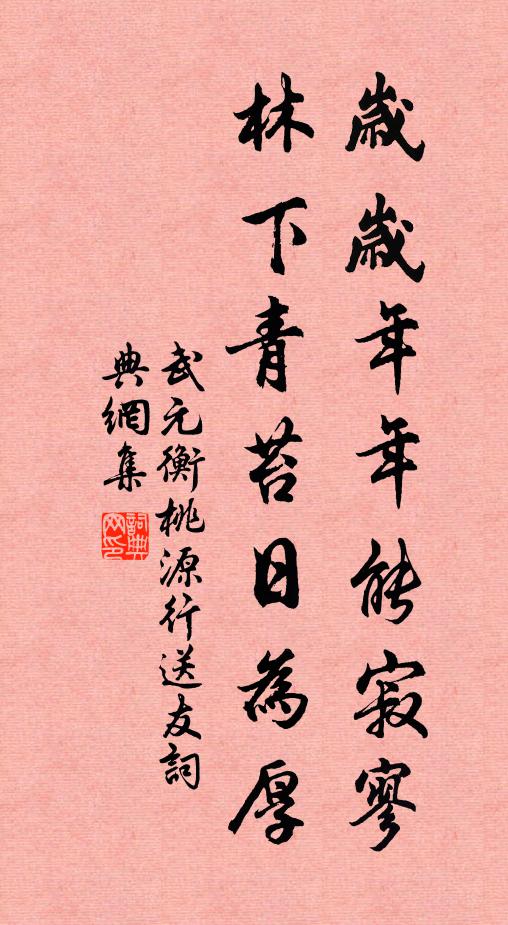 歲歲年年能寂寥
林下青苔日為厚
武元衡桃源行送友詞
典網集
詞典網印